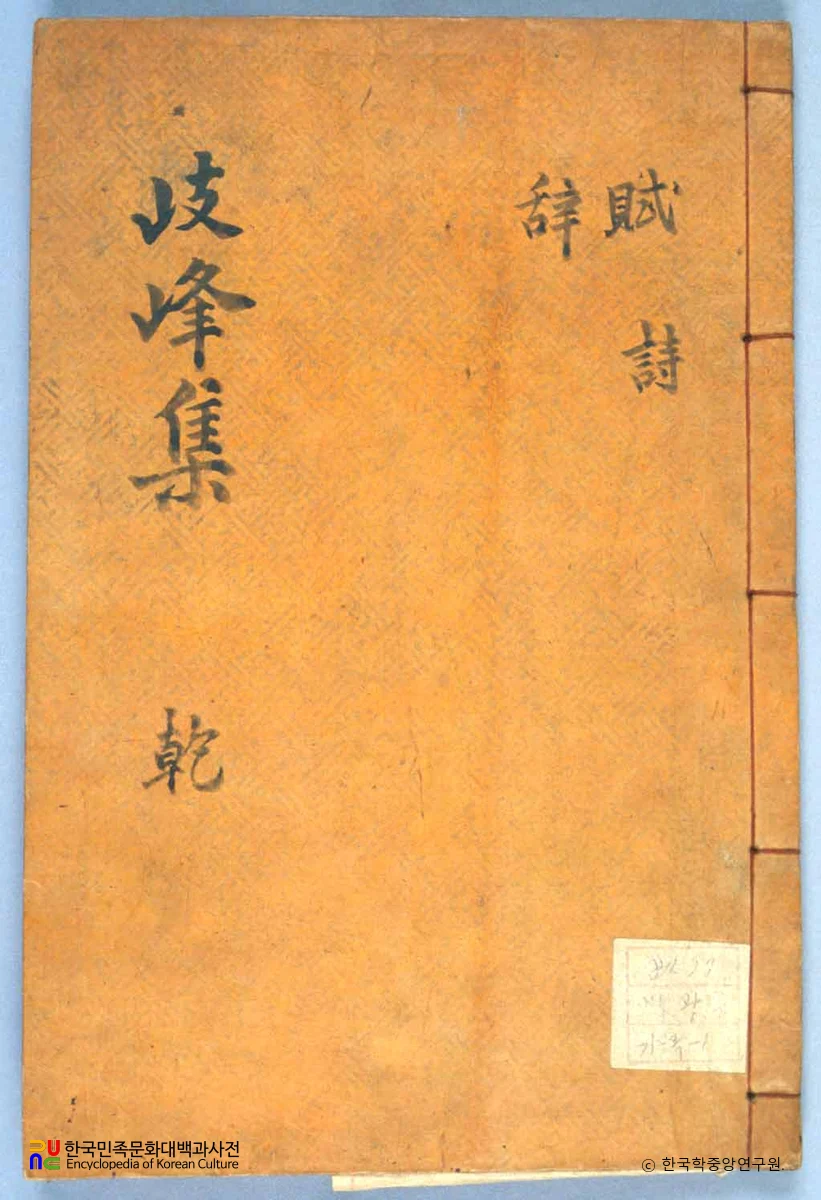 賦 詩
辞
岐峰集 乾
한국민족문화대백과사전
Encyclopedia of Korean Culture
ⓒ 한국학중앙연구원